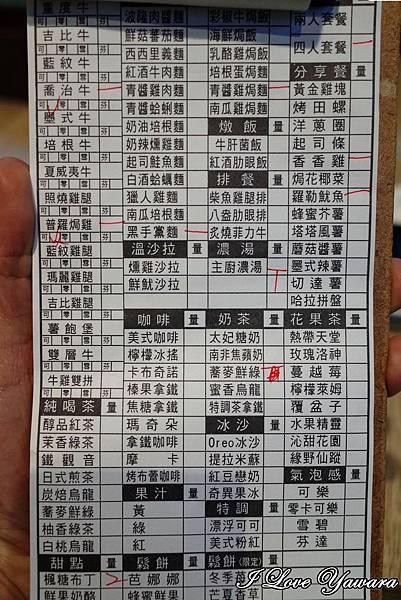 重度牛
可 零 雪 芬
吉比牛
可 零 雪 芬
藍紋牛
可 零 雪 芬
喬治牛
可 零 雪 芬
墨式牛
可 零 雪 芬
培根牛
可 零 雪 芬
夏威夷牛
可 零 雪 芬
照燒雞腿
可 零 雪 芬
普羅焗雞
可 零 雪 芬
藍紋雞腿
可 零 雪 芬
瑪麗雞腿
可 零 雪 芬
吉比雞腿
可 零 雪 芬
薯飽堡
可 零 雪 芬
雙層牛
可 零 雪 芬
牛雞雙拼
可 零 雪 芬
純喝茶 量
醇品紅茶
茉香綠茶
鐵觀音
日式煎茶
炭焙烏龍
蕎麥鮮綠
柚香綠茶
白桃烏龍
甜點 量
楓糖布丁
鮮果奶酪
波隆肉醬麵
鮮菇蕃茄麵
西西里義麵
紅酒牛肉麵
青醬雞肉麵
青醬蛤蜊麵
奶油培根麵
奶辣燻雞麵
起司鮭魚麵
白酒蛤蠣麵
獵人雞麵
南瓜培根麵
黑手黨麵
溫沙拉 量
燻雞沙拉
鮮魷沙拉
咖啡 量
美式咖啡
檸檬冰搖
卡布奇諾
榛果拿鐵
焦糖拿鐵
瑪奇朵
拿鐵咖啡
摩卡
烤布蕾咖啡
果汁 量
黃
綠
紅
鬆餅 量
芭娜娜
蜂蜜鮮果
彩椒牛焗飯
海鮮焗飯
乳酪雞焗飯
培根蛋焗飯
青醬雞焗飯
南瓜雞焗飯
燉飯 量
牛肝菌飯
紅酒肋眼飯
排餐 量
柴魚雞腿排
八盎肋眼排
炙燒菲力牛
濃湯 量
主廚濃湯
奶茶 量
太妃糖奶
南非焦蘋奶
蕎麥鮮綠
蜜香烏龍
特調茶拿鐵
冰沙 量
Oreo冰沙
提拉米蘇
紅豆戀奶
奇異果冰
特調 量
漂浮可可
美式粉紅
鬆餅(限定) 量
兩人套餐
四人套餐
分享餐 量
黃金雞塊
烤田螺
洋蔥圈
起司條
香香雞
焗花椰菜
羅勒魷魚
蜂蜜芥薯
塔塔風薯
蘑菇醬薯
墨式辣薯
切達薯
哈拉拼盤
花果茶 量
熱帶天堂
玫瑰洛神
蔓越莓
檸檬萊姆
覆盆子
水果精靈
沁甜花園
緣野仙蹤
氣泡感 量
可樂
零卡可樂
雪碧
芬達
I Love Yawara